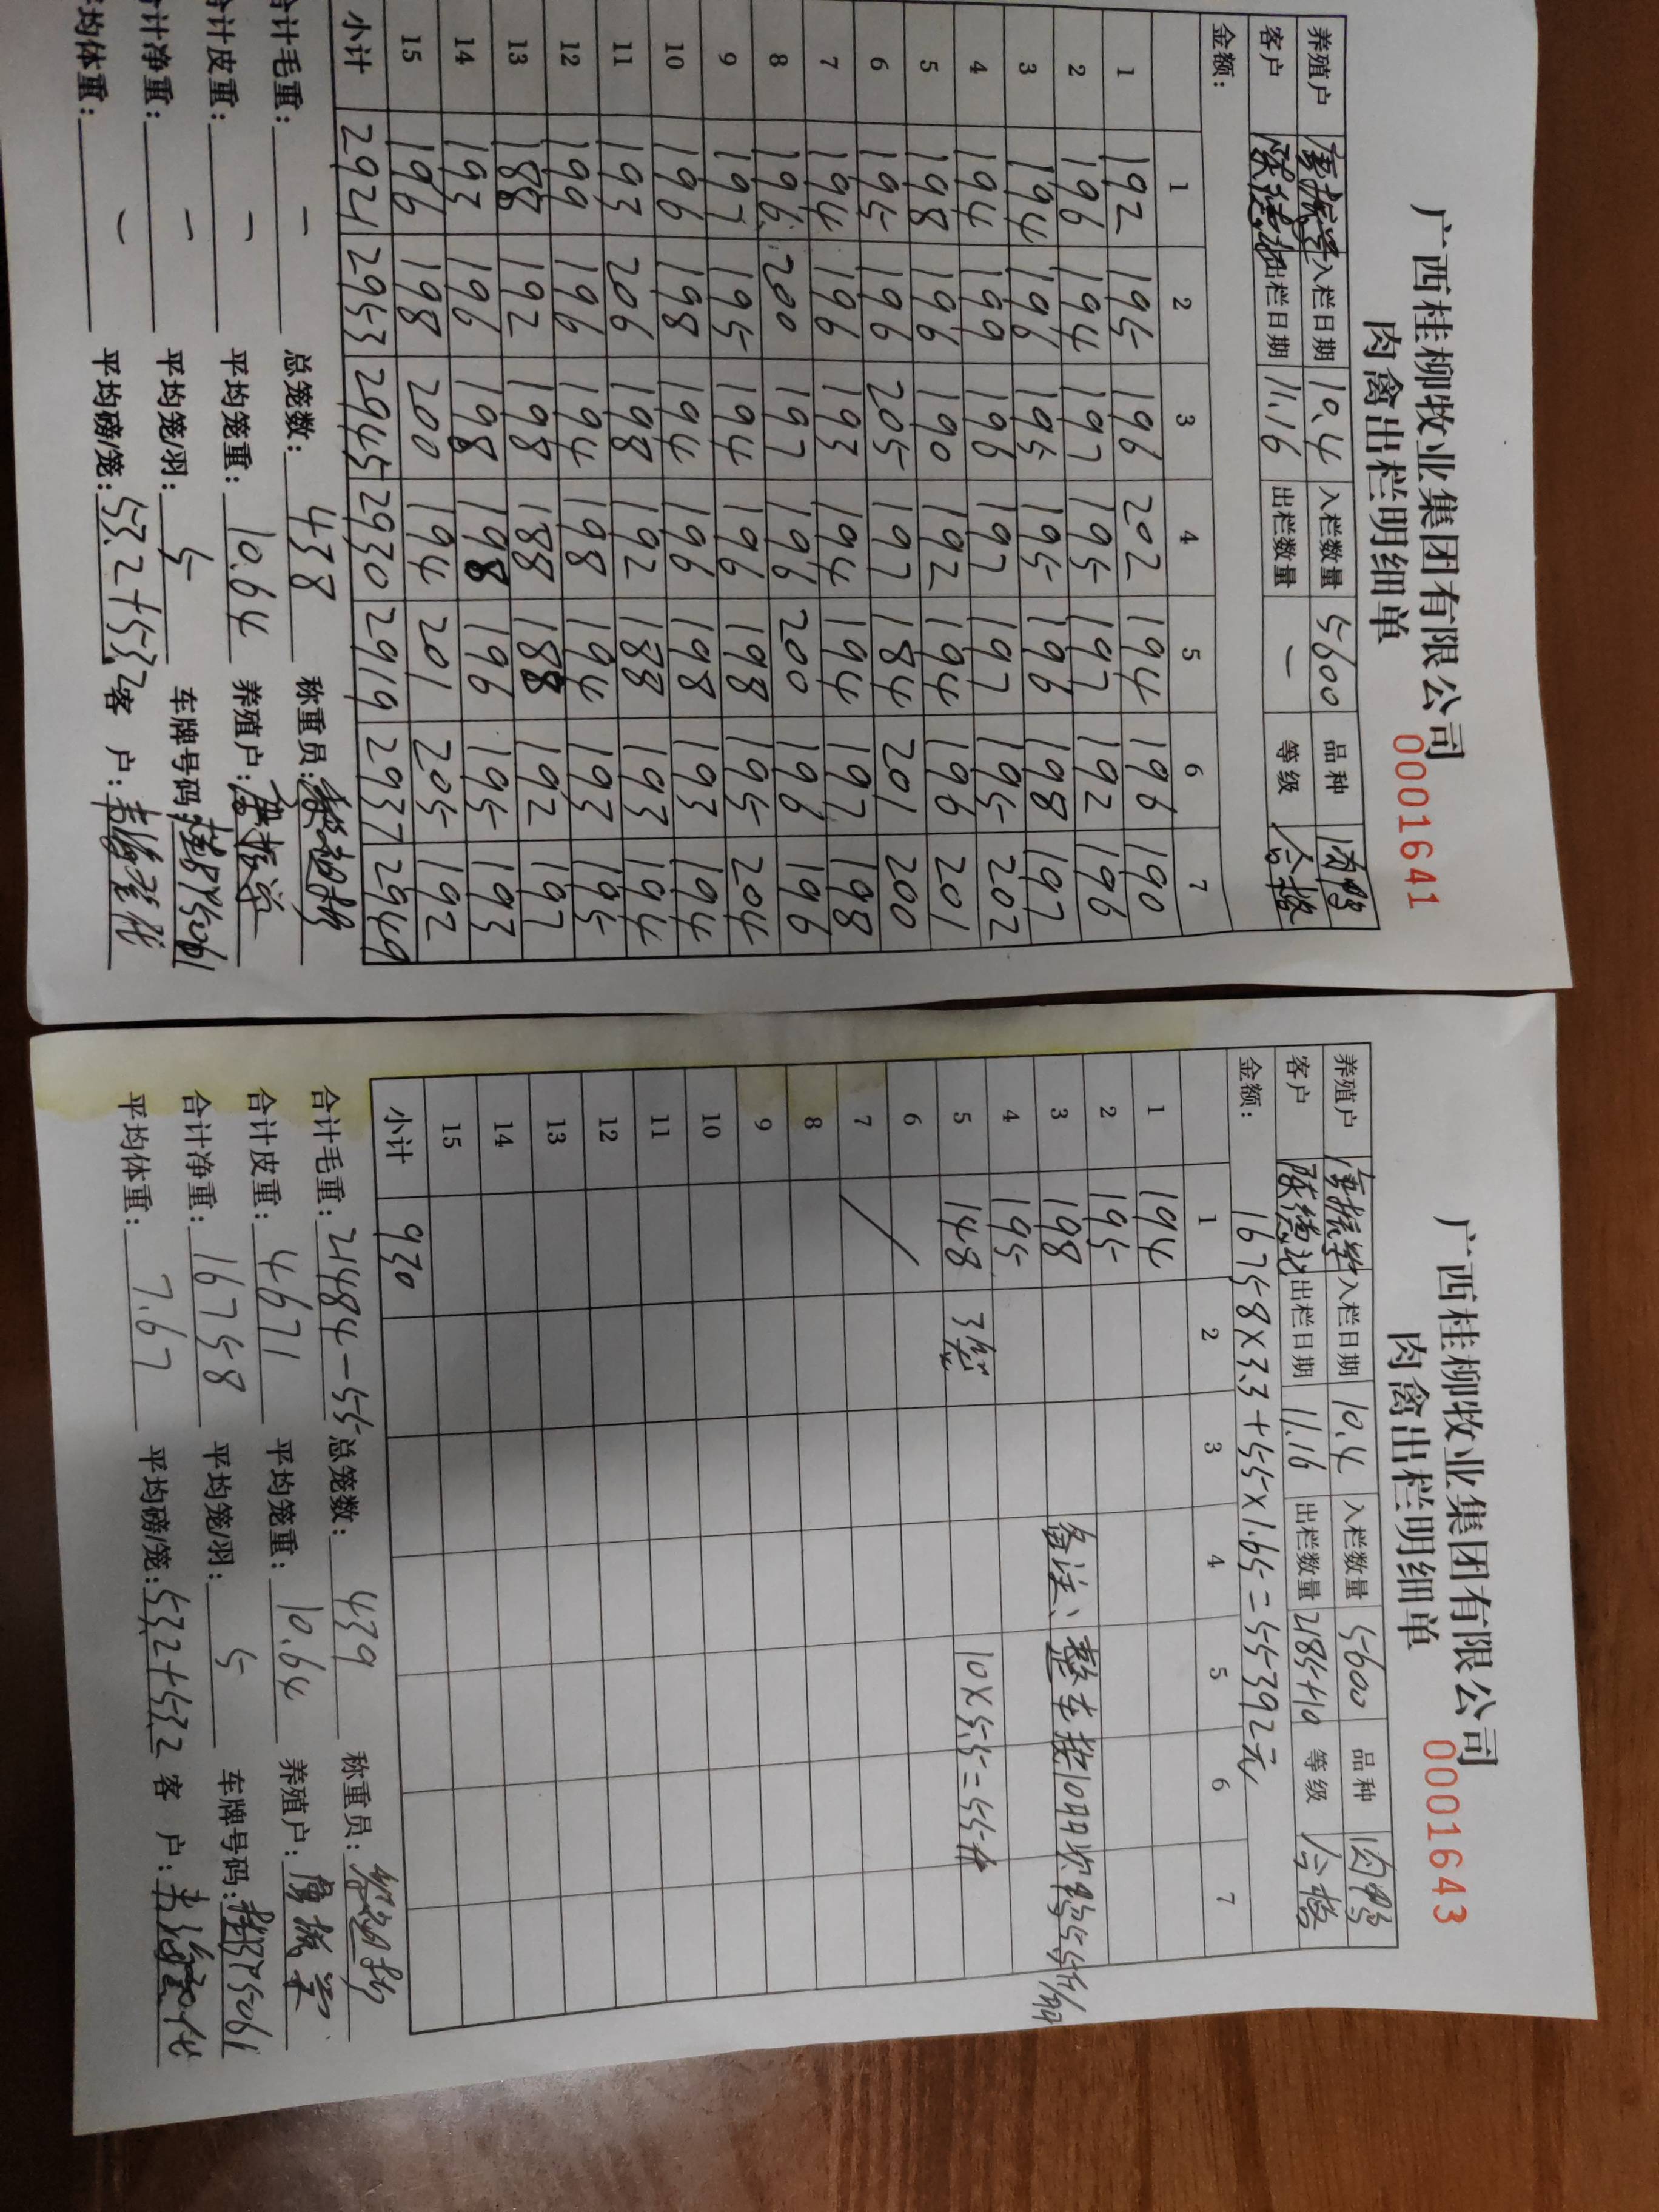 广西桂柳牧业集团有限公司
肉禽出栏明细单
0001641
养殖户 唐振学 入栏日期 10.4 入栏数量 5600 品种 肉鸭
客户 陈德礼 出栏日期 11.16 出栏数量 — 等级 合格
金额:
1 2 3 4 5 6 7
1 192 195 196 202 194 196 190
2 196 194 197 195 197 192 196
3 194 196 195 195 196 198 197
4 194 199 196 197 197 195 202
5 198 196 190 192 194 196 201
6 195 196 205 197 184 201 200
7 194 196 193 194 194 197 198
8 196 200 197 196 200 196 196
9 197 195 194 196 198 195 204
10 196 198 194 196 198 193 194
11 193 206 198 192 188 193 194
12 199 196 194 198 194 193 195
13 188 192 198 188 188 192 197
14 193 196 198 198 196 195 193
15 196 198 200 194 201 205 192
小计 2921 2953 2945 2930 2919 2937 2949
合计毛重: — 总笼数: 438 称重员:
合计皮重: — 平均笼重: 10.64 养殖户: 唐振学
合计净重: — 平均笼/羽: 5 车牌号码:
平均体重: — 平均磅/笼: 53.2+53.2 客 户:
广西桂柳牧业集团有限公司
肉禽出栏明细单
0001643
养殖户 唐振学 入栏日期 10.4 入栏数量 5600 品种 肉鸭
客户 陈德礼 出栏日期 11.16 出栏数量 2185+10 等级 合格
金额: 16758×3.3+55×1.65=55392元
1 2 3 4 5 6 7
1 194
2 195
3 198 备注、整车按10只次鸭5.5斤/只
4 195
5 148 3笼 10×5.5=55斤
6
7
8
9
10
11
12
13
14
15
小计 930
合计毛重: 21484-55 总笼数: 439 称重员:
合计皮重: 4671 平均笼重: 10.64 养殖户: 唐振学
合计净重: 16758 平均笼/羽: 5 车牌号码:
平均体重: 7.67 平均磅/笼: 53.2+53.2 客 户: